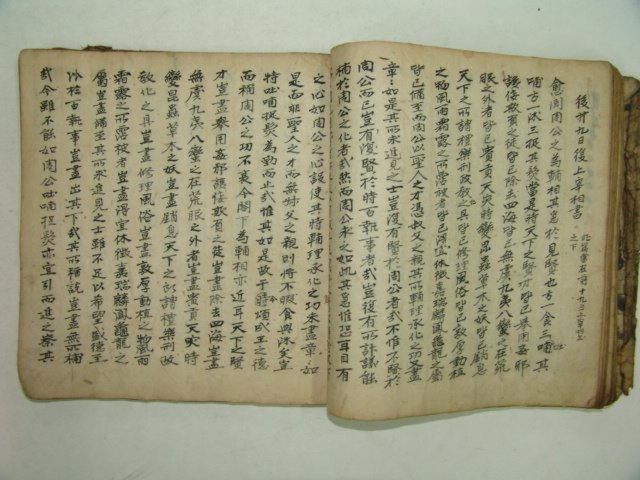 後卄九日復上宰相書
愈聞周公之為輔相其急於見賢也方一食三吐其
哺方一沐三捉其髮當是時天下之賢才皆已舉用姦邪
讒佞欺負之徒皆已除去四海皆已無虞九夷八蠻之在荒
服之外者皆已賓貢天灾時變昆蟲草木之妖皆已銷息
天下之所謂禮樂刑政教化之具皆已修理風俗皆已敦厚動植
之物風雨霜露之所霑被者皆已得宜休徵嘉瑞麟鳳龜龍之屬
皆已備至而周公以聖人之才憑叔父之親其所輔理承化之功又盡
章章如是其所求進見之士豈復有賢於周公者哉不惟不賢於
周公而已豈復有賢於時百執事者哉豈復有所計議能
補於周公之化者哉然而周公求之如此其急惟恐耳目有
之心如周公之心設使其時輔理承化之功未盡章章如
是而非聖人之才而無叔父之親則將不暇食與沐矣豈
特吐哺捉髮為勤而止哉惟其如是故于今頌成王之德
而稱周公之功不衰今閤下為輔相亦近耳天下之賢
才豈盡舉用姦邪讒佞欺負之徒豈盡除去四海豈盡
無虞九夷八蠻之在荒服之外者豈盡賓貢天灾時
變昆蟲草木之妖豈盡銷息天下之所謂禮樂刑政
教化之具豈盡修理風俗豈盡敦厚動植之物風雨
霜露之所霑被者豈盡得宜休徵嘉瑞麟鳳龜龍之
屬豈盡備至其所求進見之士雖不足以希望盛德至
於比百執事豈盡出其下哉其所稱說豈盡無所補
哉今雖不能如周公吐哺捉髮亦宜引而進之察其